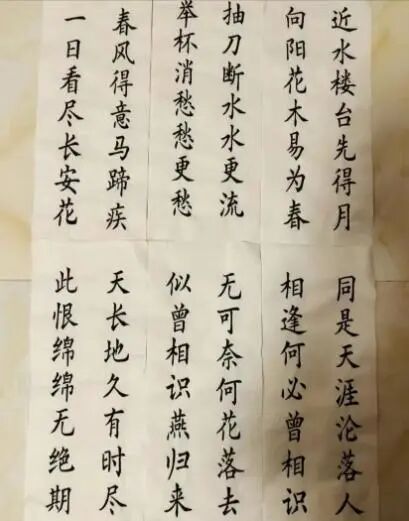 近水楼台先得月
向阳花木易为春
抽刀断水水更流
举杯消愁愁更愁
春风得意马蹄疾
一日看尽长安花
同是天涯沦落人
相逢何必曾相识
无可奈何花落去
似曾相识燕归来
天长地久有时尽
此恨绵绵无绝期